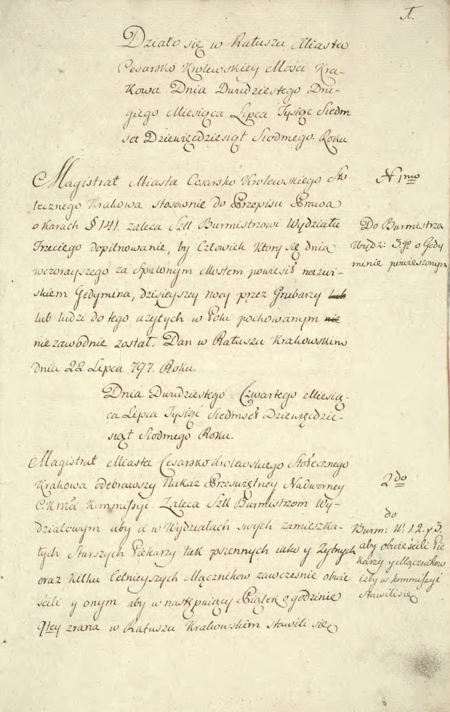 1.
Działo się w Ratuszu Miasta
Cesarsko Krolewskiey Mosci Kra-
kowa Dnia Dwudziestego Dru-
giego Miesiąca Lipca Tysiąc Siedm
set Dziewięcdziesiąt Siodmego Roku
Magistrat Miasta Cesarsko Krolewskiego Sto
łecznego Krakowa stosownie do Przepisu Prawa
o karach § 141. zaleca Szll Burmistrzowi Wydziału
Trzeciego dopilnowanie, by Człowiek Ktory się dnia
wczorayszego za Spalonym Mostem powiesił nazwi-
skiem Gedymina, dzisieyszey nocy przez Grubarzy
lub ludzi do tego uzytych w Polu pochowanym
niezawodnie został. Dan w Ratuszu Krakowskim
dnia 22 Lipca 797. Roku.
N 1mo
Do Burmistrza
Wydz: 3go o Gedy
minie powieszonym
Dnia Dwudziestego Czwartego Miesią-
ca Lipca Tysiąc Siedmset Dziewięcdzie-
siąt Siodmego Roku.
Magistrat Miasta Cesarsko Krolewskiego Stołecznego
Krakowa odebrawszy Nakaz Przeswiętney Nadworney
C. Krole Kommissyi Zaleca Szll Burmistrzom Wy-
działowym aby d w Wydziałach swych zamieszka-
łych Starszych Piekarzy tak pszennych iako y Zytnych
oraz kilku celnieyszych Mącznikow zawczesnie obwie
scili y onym aby w następuiący Piątek o godzinie
9tey zrana w Ratuszu Krakowskim stawili się
2do
do
Burm: W. 1. 2. y 3.
aby obwiescili Pie
karzy y Mącznikow
izby w kommissyi
stawili się